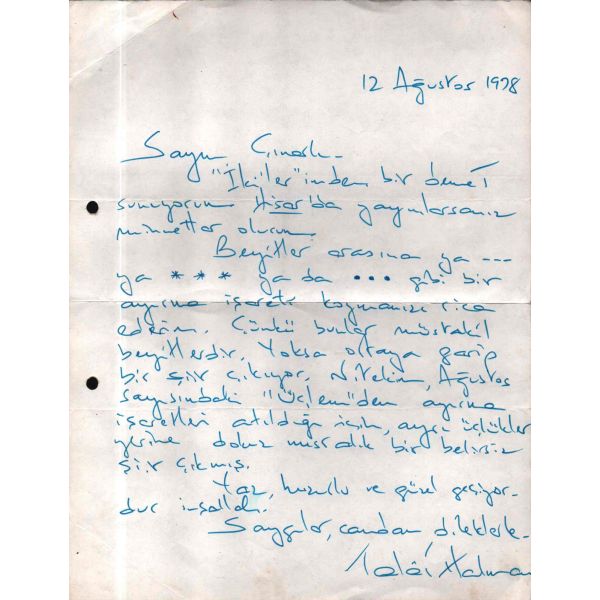 12 Ağustos 1978
Sayın Çınarlı -
"İkiler"imden bir demet
sunuyorum. Hisar'da yayınlarsanız
minnettar olurum.
Beyitler arasına ya ---
ya * * * ya da ••• gibi bir
ayırma işareti koymanızı rica
ederim. Çünkü bunlar müstakil
beyitlerdir. Yoksa ortaya garip
bir şiir çıkıyor. Nitekim, Ağustos
sayısındaki "Üçlemü'den ayırma
işaretleri atıldığı için, ayrı üçlükler
yerine dokuz mısralık bir belirsiz
şiir çıkmış.
Yaz, huzurlu ve güzel geçiyor-
dur inşallah.
Saygılar, candan dileklerle -
Talât Halman